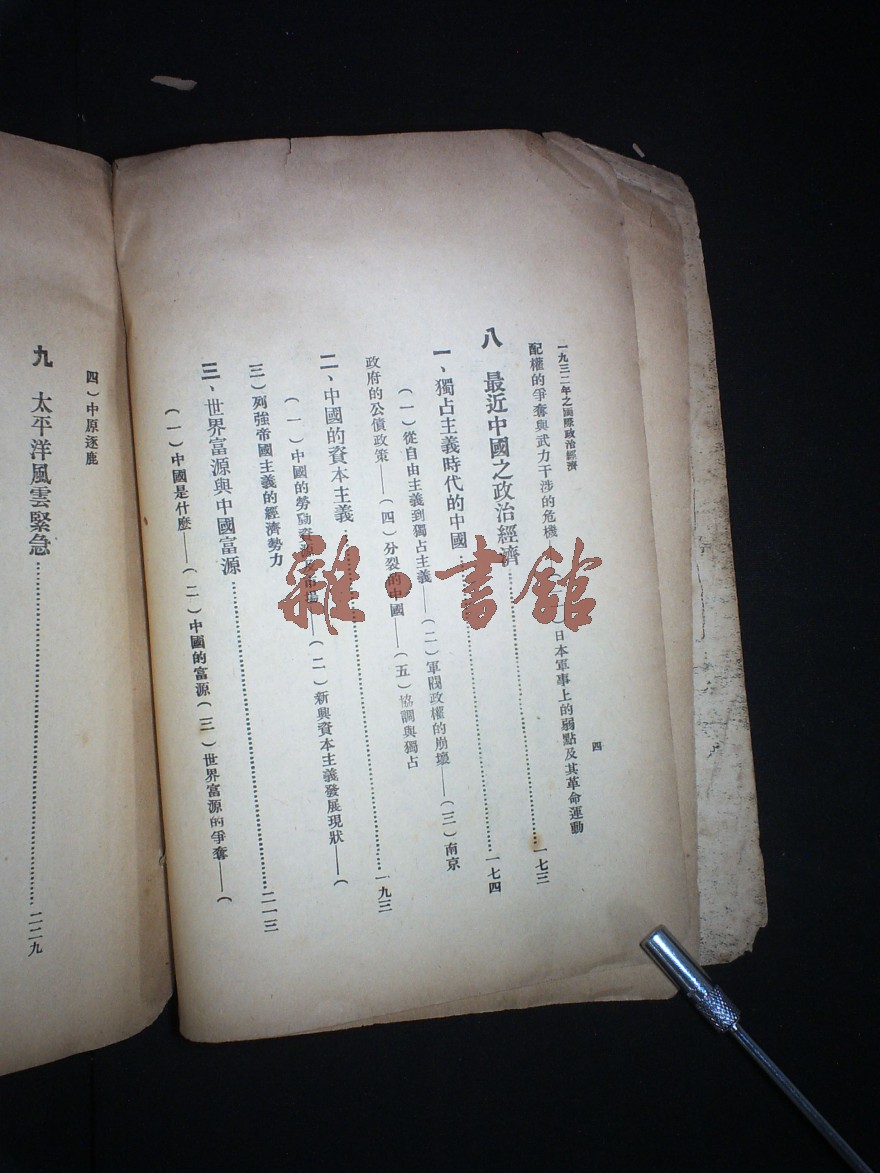 一九三二年之國際政治經濟
四
配權的爭奪與武力干涉的危機
日本軍事上的弱點及其革命運動
八 最近中國之政治經濟……一七三
一、獨占主義時代的中國……一七四
(一)從自由主義到獨占主義——(二)軍閥政權的崩壞——(三)南京
政府的公債政策——(四)分裂的中國——(五)協調與獨占
二、中國的資本主義……一九三
(一)中國的勞動資 市場——(二)新興資本主義發展現狀——(
三)列強帝國主義的經濟勢力
三、世界富源與中國富源……二一三
(一)中國是什麼——(二)中國的富源(三)世界富源的爭奪——(
四)中原逐鹿
九 太平洋風雲緊急……二二九
雜·書館